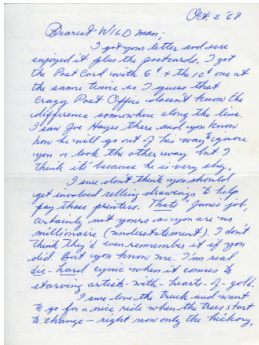 Oct. 2 '68
Dearest WILD man;
I got your letter and sure
enjoyed it plus the postcards. I got
the Post Card with 6¢ & the 10¢ one at
the same time so I guess that
crazy Post Office doesn't know the
difference somewhere along the line.
I saw Joe Hayes there and you know
how he will go out of his way ignore
you or look the other way but I
think it's because he is very shy.
I sure don't think you should
get involved selling drawings to help
pay those printers. Thats June's job,
certainly not yours as you are no
millionaire (understatement). I don't
think they'd even remember it if you
did. But you know me. I'm real
die-hard cynic when it comes to
starving artists-with-hearts-of-gold.
I sure love the truck and want
to go for a nice ride when the trees start
to change - right now only the hickory,